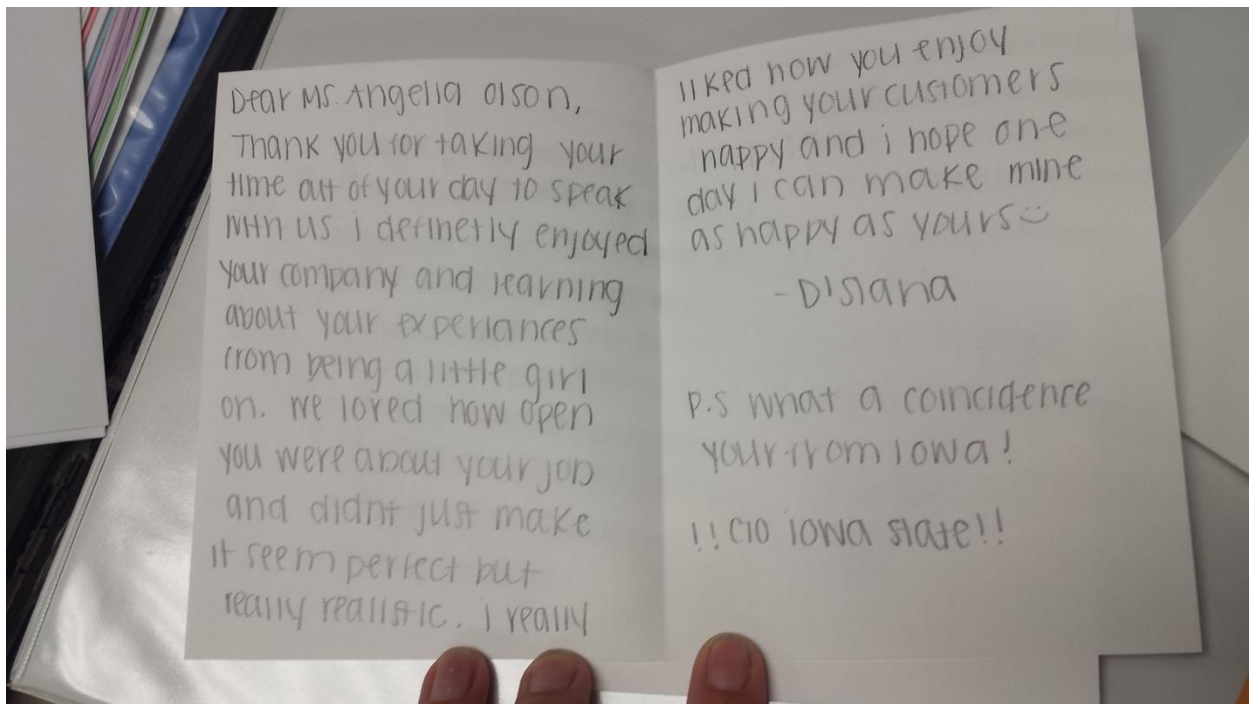 Dear Ms. Angelia Olson,
Thank you for taking your
time out of your day to speak
with us i definetly enjoyed
your company and learning
about your experiances
from being a little girl
on. We loved how open
you were about your job
and didnt just make
it seem perfect but
really realistic. i really
liked how you enjoy
making your customers
happy and i hope one
day i can make mine
as happy as yours☺
- D'siana
P.S what a coincidence
your from iowa!
!! GO iowa state!!